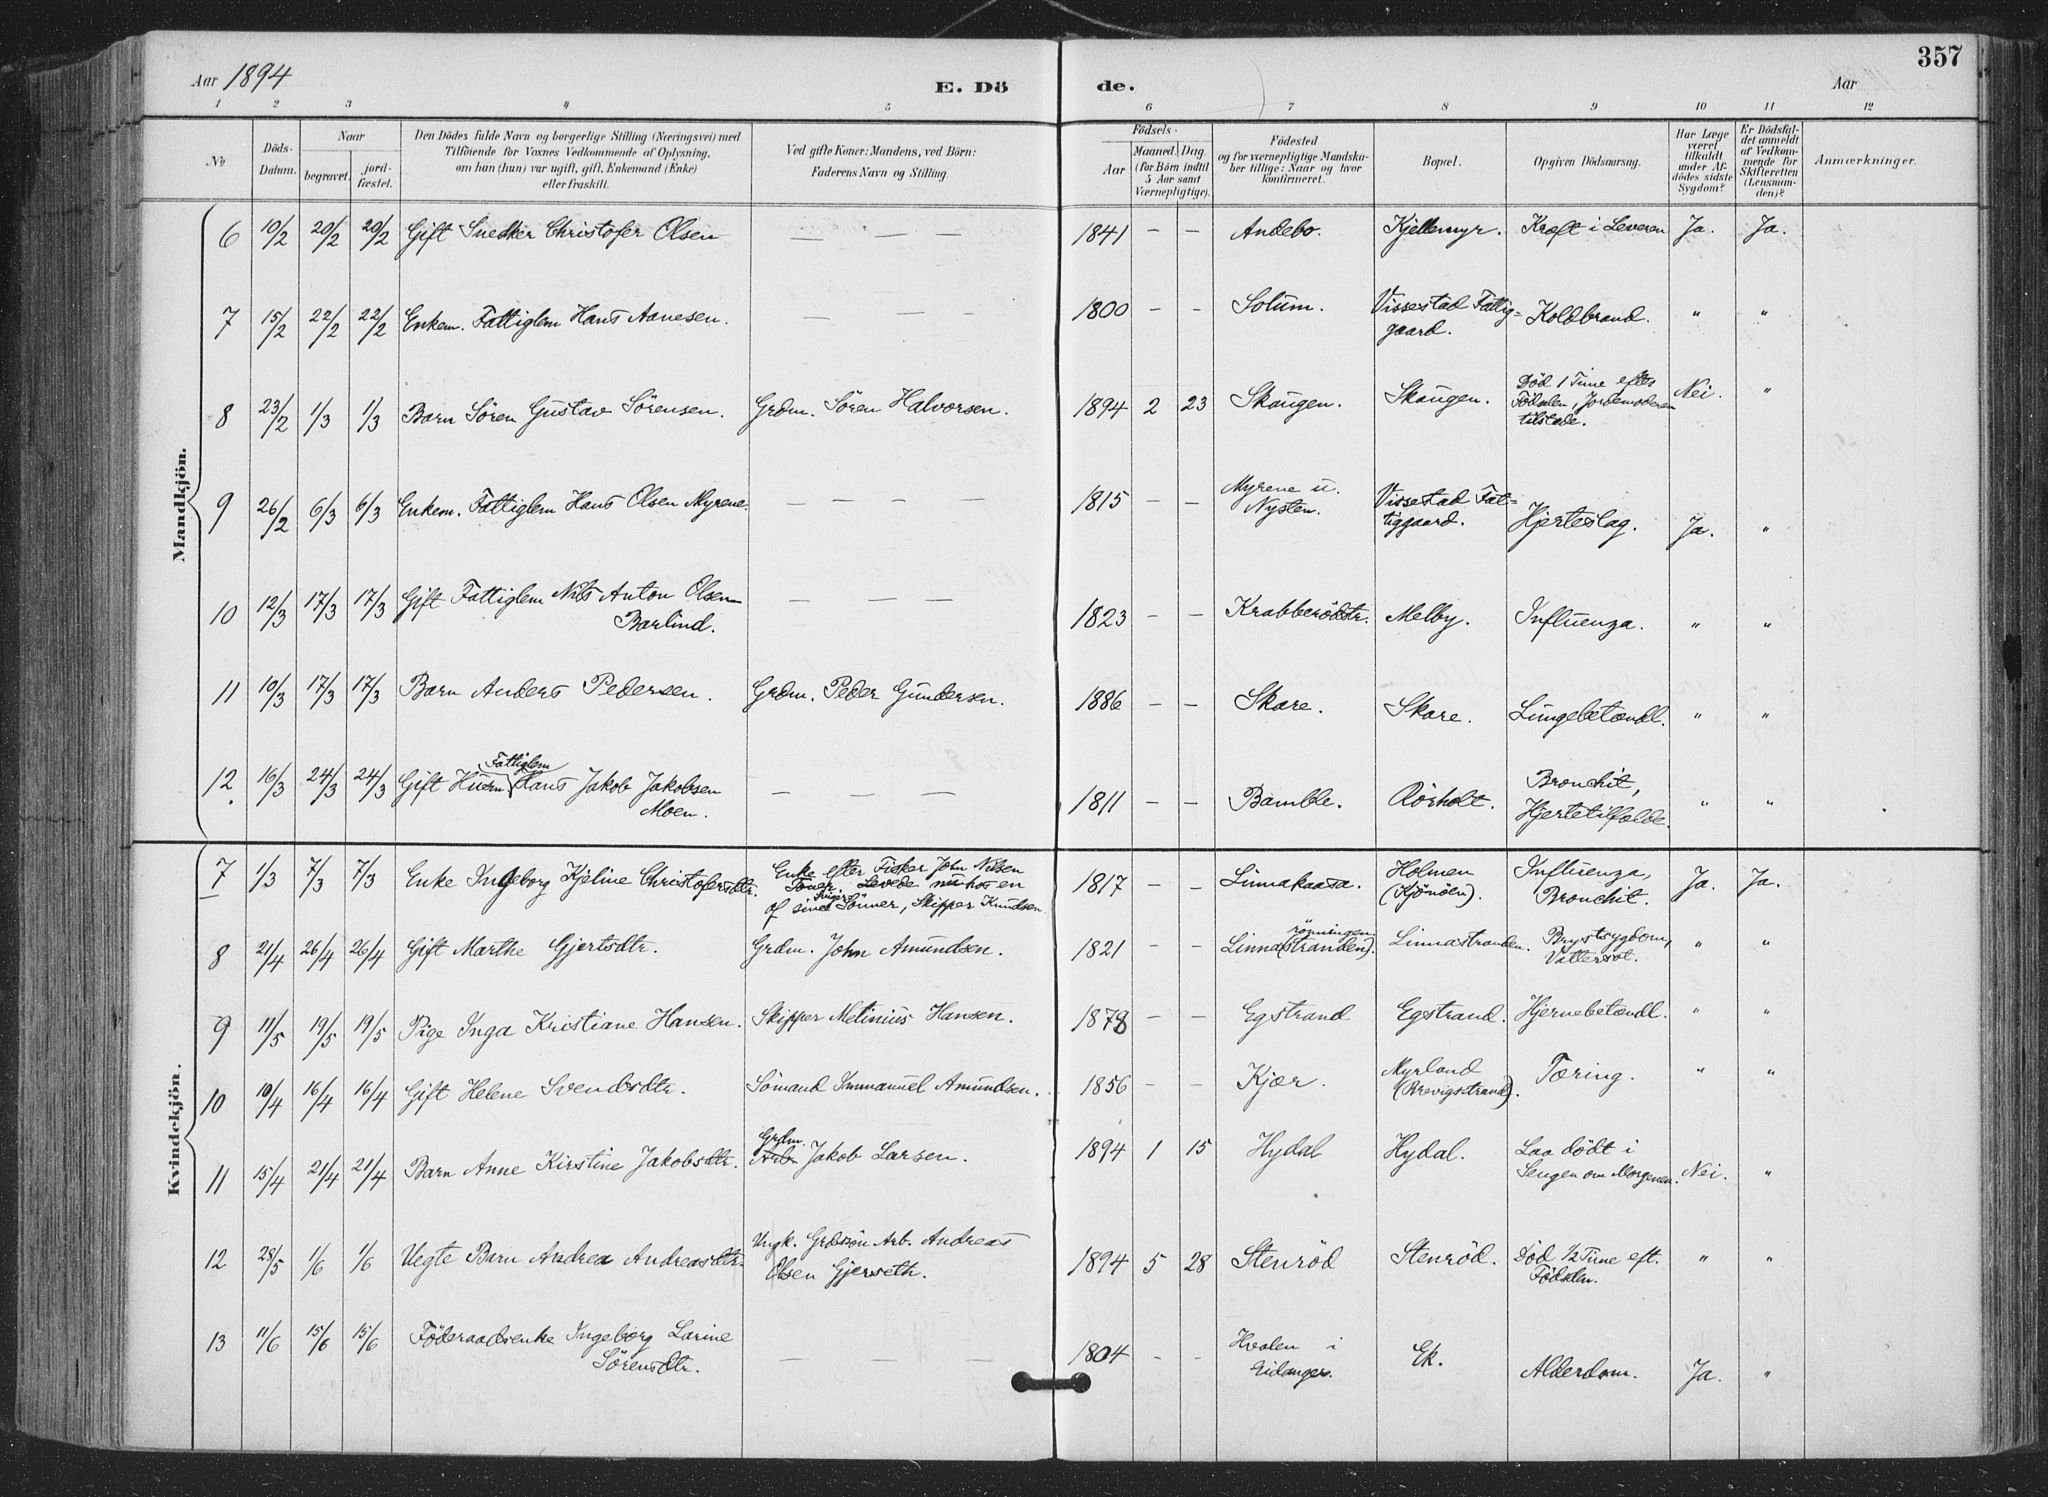 357
Aar 1894
E. Döde.
Aar
1 2 3 4 5 6 7 8 9 10 11 12
No
Döds-Datum.
Naar
begravet.
jord-fæstet.
Den Dödes fulde Navn og borgerlige Stilling (Næringsvei) med
Tilföiende for Voxnes Vedkommende af Oplysning,
om han (hun) var ugift, gift, Enkemand (Enke)
eller fraskilt.
Ved gifte Koner: Mandens, ved Börn:
Faderens Navn og Stilling.
Födsels-
Aar
Maaned. Dag.
(for Börn indtil
5 Aar samt
Værnepligtige).
Födested
og for værnepligtige Mandska-
ber tillige: Naar og hvor
konfirmeret.
Bopæl.
Opgiven Dödsaarsag.
Har Læge
været
tilkaldt
under Af-
dödes sidste
Sygdom?
Er Dödsfal-
det anmeldt
af Vedkom-
mende for
Skifteretten
(Lensman-
den)?
Anmærkninger.
Mandkjön.
6 10/2 20/2 20/2 Gift Snedker Christofer Olsen — — — 1841 — — Andebo. Kjellemyr. Kræft i Leveren Ja. Ja.
7 15/2 22/2 22/2 Enkem. Fattiglem Hans Aanesen. — — — 1800 — — Solum. Vissestad Fattig=
gaard. Koldbrand. " "
8 23/2 1/3 1/3 Barn Sören Gustav Sörensen. Grdm. Sören Halvorsen. 1894 2 23 Skougen. Skougen. Död 1 Time efter
Födselen, Jordemoderen
tilstede. Nei. "
9 26/2 6/3 6/3 Enkem. Fattiglem Hans Olsen Myrene. — — — 1815 — — Myrene u.
Nysten. Vissestad Fat=
tiggaard. Hjerteslag. Ja. "
10 12/3 17/3 17/3 Gift Fattiglem Nils Anton Olsen
Barlind. — — — 1823 — — Krabberödstr. Melby. Influenza. " "
11 10/3 17/3 17/3 Barn Anders Pedersen. Grdm. Peder Gundersen. 1886 — — Skare. Skare. Lungebetændl. " "
12 16/3 24/3 24/3 Fattiglem
Gift Husm Hans Jakob Jakobsen
Moen. — — — 1811 — — Bamble. Rörholt. Bronchit,
Hjertetilfælde. " "
Kvindekjön.
7 1/3 7/3 7/3 Enke Ingeborg Kjeline Christofersdtr. Enke efter Fisker John Nilsen
Toner. Levede nu hos en
af sine Sönner, Skipper Knudsen. 1817 — — Linnakaasa. Holmen
(Kjönöen). Influenza,
Bronchit. Ja. Ja.
8 21/4 26/4 26/4 Gift Marthe Gjertsdtr. Grdm. John Amundsen. 1821 — — rönningen
Linna(stranden). Linnastranden. Brystsygdom,
Vattersot. " "
9 11/5 19/5 19/5 Pige Inga Kristiane Hansen. Skipper Melinius Hansen. 1878 — — Egstrand Egstrand. Hjernebetændl. " "
10 10/4 16/4 16/4 Gift Helene Svendsdtr. Sömand Immanuel Amundsen. 1856 — — Kjær. Myrland
(Brevigsstrand). Tæring. " "
11 15/4 21/4 21/4 Barn Anne Kirstine Jakobsdtr. Grdm.
Arb. Jakob Larsen. 1894 1 15 Hydal Hydal. Laa dödt i
Sengen om Morgenen. Nei. "
12 28/5 1/6 1/6 Uegte Barn Andrea Andreasdtr. Ungk. Grdssön Arb. Andreas
Olsen Gjerseth. 1894 5 28 Stenröd Stenröd. Död 1/2 Time eft.
Födselen. " "
13 11/6 15/6 15/6 Föderaadsenke Ingeborg Larine
Sörensdtr. — — — 1804 — — Hvalen i
Eidanger. Ek. Alderdom. Ja. "